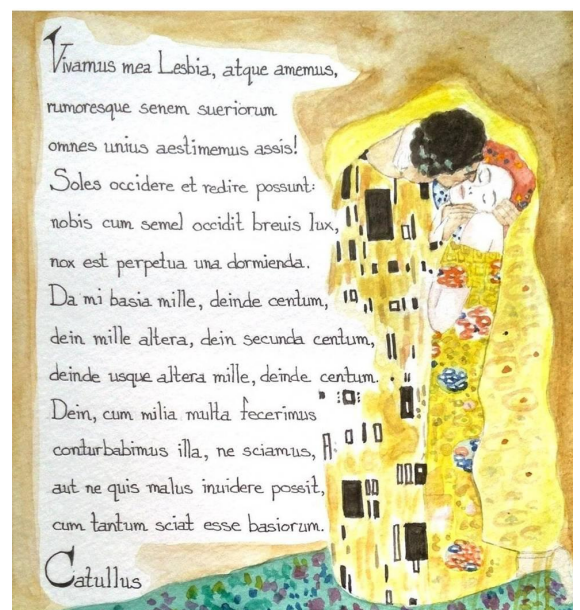 Vivamus mea Lesbia, atque amemus,
rumoresque senem sueriorum
omnes unius aestimemus assis!
Soles occidere et redire possunt:
nobis cum semel occidit breuis lux,
nox est perpetua una dormienda.
Da mi basia mille, deinde centum,
dein mille altera, dein secunda centum,
deinde usque altera mille, deinde centum.
Dein, cum milia multa fecerimus
conturbabimus illa, ne sciamus,
aut ne quis malus inuidere possit,
cum tantum sciat esse basiorum.
Catullus